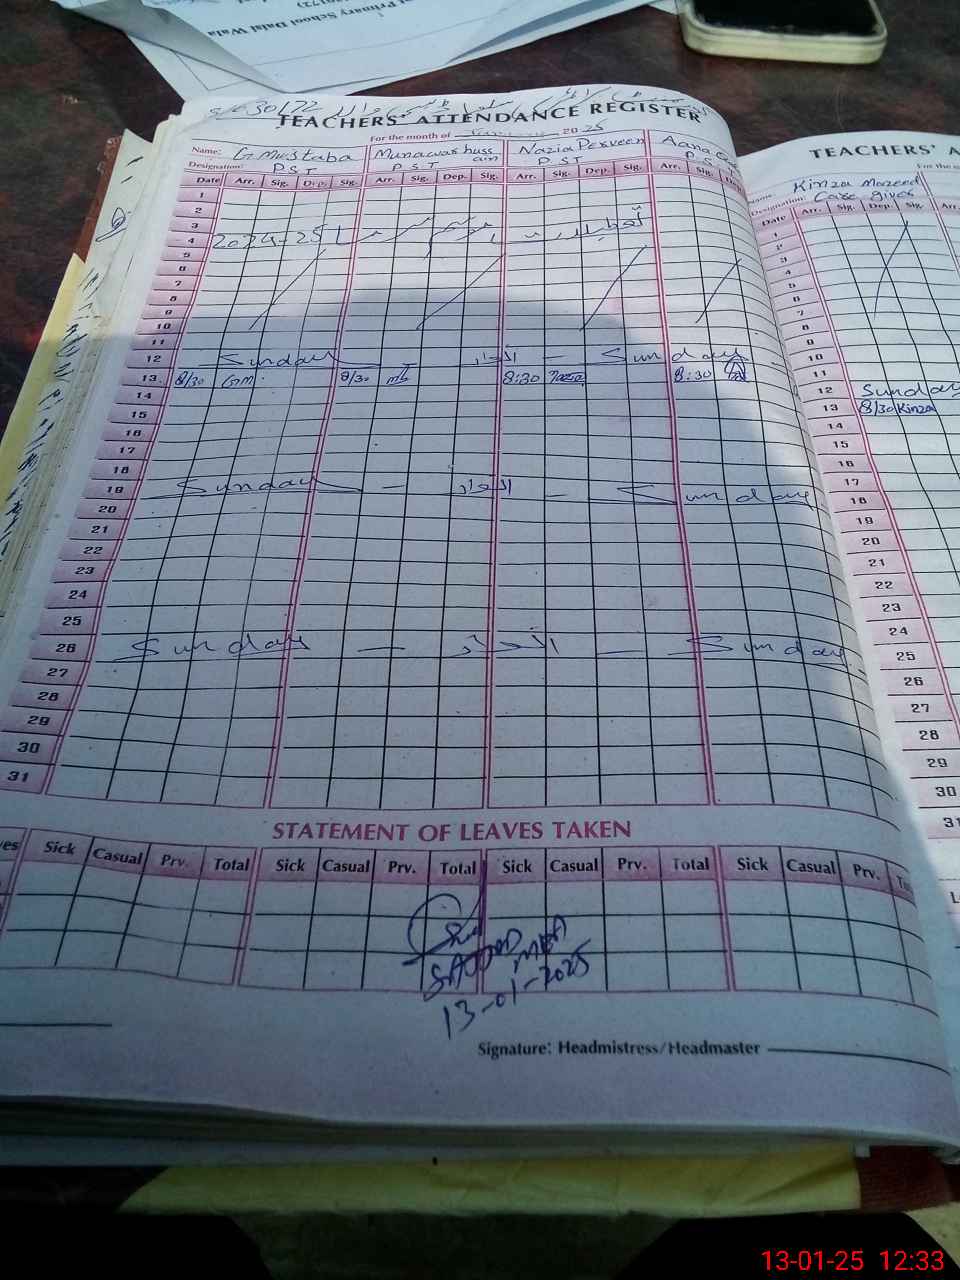 Primary School Dalal Wala
TEACHERS' ATTENDANCE REGISTER
For the month of 2025
Name: G Mustaba Munawar huss ain Nazia Perveen Aana
Designation: P.S.T P.S.T P.S.T P.S.T
Date Arr. Sig. Dep. Sig. Arr. Sig. Dep. Sig. Arr. Sig. Dep. Sig. Arr. Sig.
1
2
3
4 2024-25
5
6
7
8
9
10
11
12 Sunday — اتوار — Sunday
13 8/30 GM 8/30 8:30 Nazia 8:30
14
15
16
17
18
19 Sunday — اتوار — Sunday
20
21
22
23
24
25
26 Sunday — اتوار — Sunday
27
28
29
30
31
STATEMENT OF LEAVES TAKEN
Sick Casual Prv. Total Sick Casual Prv. Total Sick Casual Prv. Total Sick Casual Prv.
SAJJAD MEA
13-01-2025
Signature: Headmistress/Headmaster
TEACHERS' A
Name Kinza
Designation: Care giver
Date Arr. Sig. Dep. Sig.
1
2
3
4
5
6
7
8
9
10
11
12 Sunday
13 8/30 Kinza
14
15
16
17
18
19
20
21
22
23
24
25
26
27
28
29
30
31
13-01-25 12:33